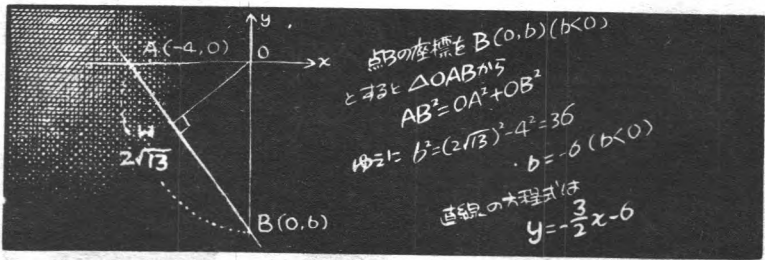 y
A(-4,0)
O
x
2√13
B(0,b)
点Bの座標を B(0,b)(b<0)
とすると △OABから
AB²=OA²+OB²
ゆえに b²=(2√13)²-4²=36
∴ b=-6 (b<0)
直線の方程式は
y=-3/2x-6